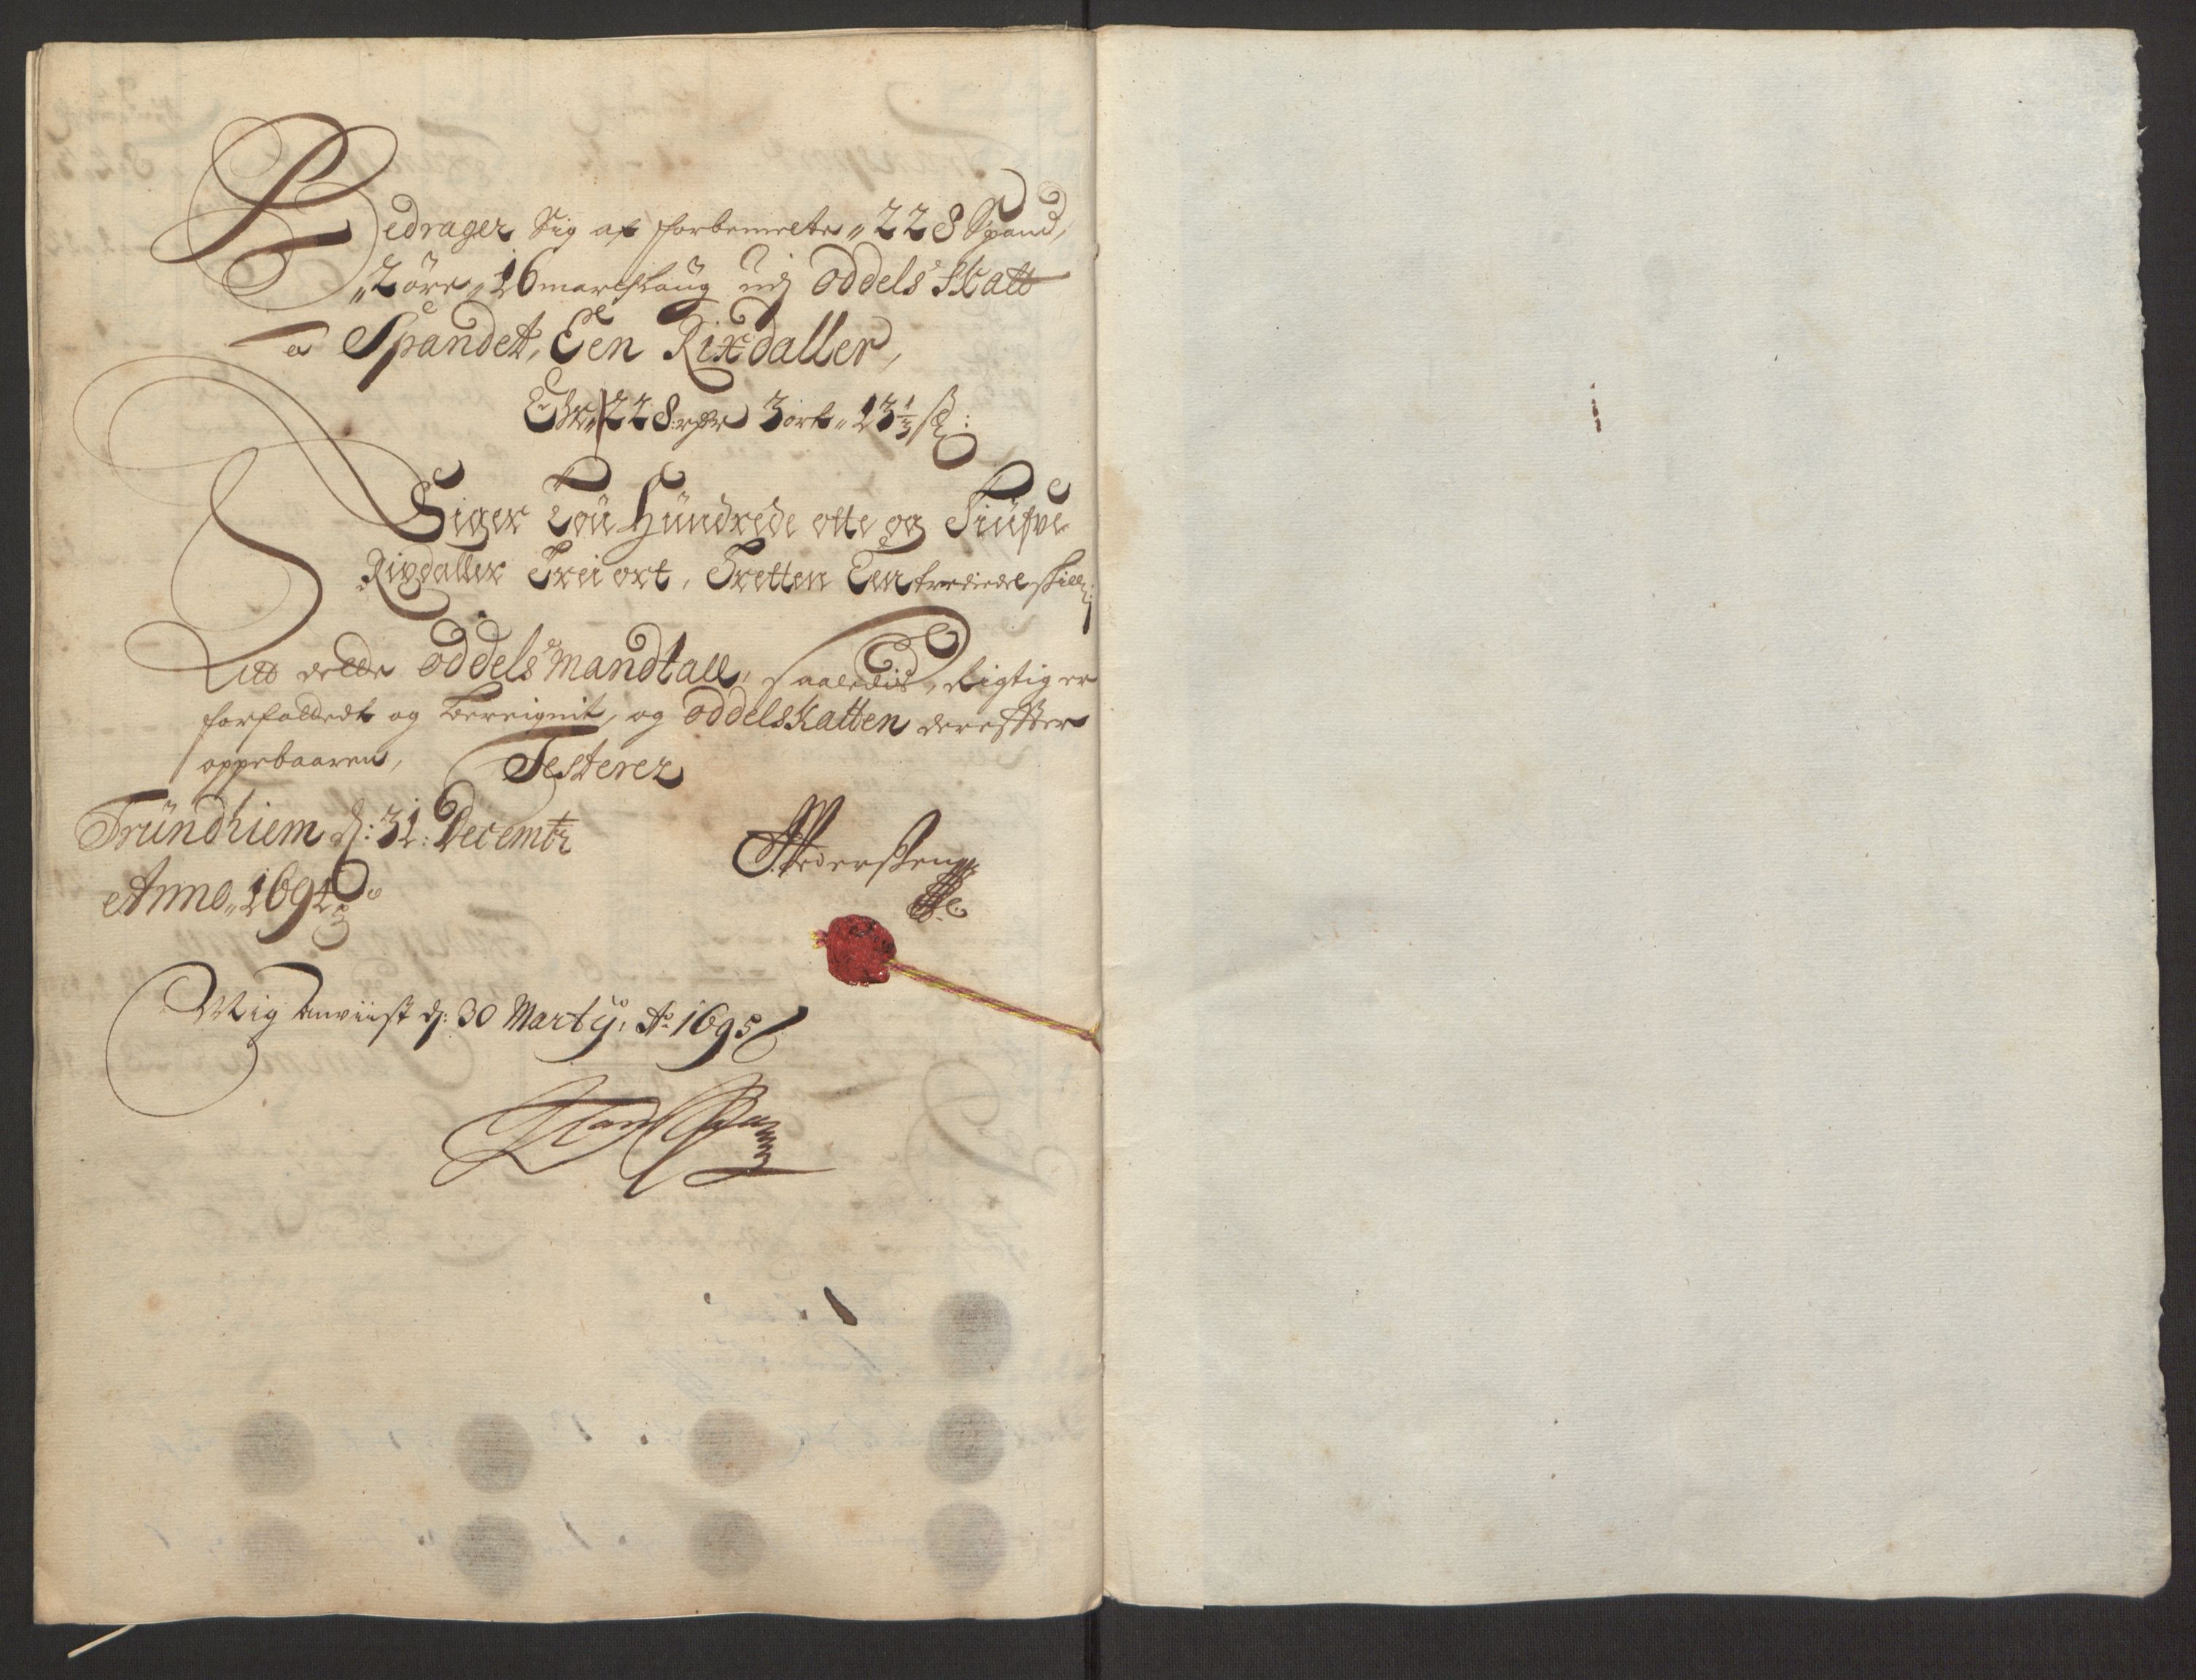 Bedrager Sig af forbemelte „228 Spand,
„2 öre „16 marchlaug udj Oddels Skatt
a Spandet, Een Rixdaller,
Er „228 rdr 3 ort „13 1/3 sk:
Siger Tou Hündrede otte og Tiufve
Rixdaller Trei ort, Tretten Een trediedel skill:
Att dette Oddels Mandtall, saaledis, Rigtig er
forfattedt og bereignit, og Oddelskatten derefter
oppebaaren, Testerer
Tründhiem d: 31: Decembr
Anno „1694
Pedersen
Mig Anviist d: 30 Martÿ, Ao 1695